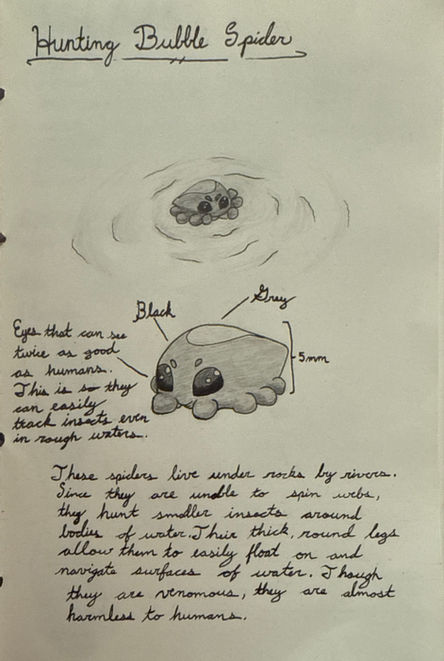 Hunting Bubble Spider
Black
Grey
5mm
Eyes that can see
twice as good
as humans.
This is so they
can easily
track insects even
in rough waters.
These spiders live under rocks by rivers.
Since they are unable to spin webs,
they hunt smaller insects around
bodies of water. Their thick, round legs
allow them to easily float on and
navigate surfaces of water. Though
they are venomous, they are almost
harmless to humans.